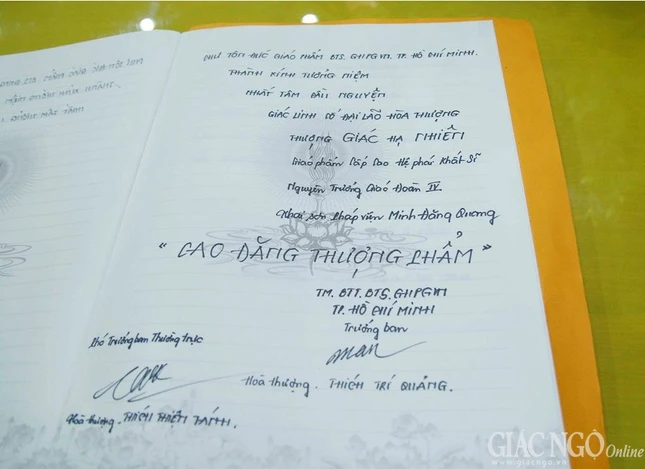 CHƯ TÔN ĐỨC GIÁO PHẨM BTS. GHPGVN. TP. HỒ CHÍ MINH.
THÀNH KÍNH TƯỞNG NIỆM
NHẤT TÂM CẦU NGUYỆN
GIÁC LINH CỐ ĐẠI LÃO HÒA THƯỢNG
THƯỢNG GIÁC HẠ NHIÊN
Giáo phẩm Cấp Cao Hệ phái Khất Sĩ
Nguyên Trưởng Giáo Đoàn IV.
Khai sơn Pháp viện Minh Đăng Quang
"CAO ĐĂNG THƯỢNG PHẨM"
TM. BTT. BTS. GHPGVN
TP. HỒ CHÍ MINH
Trưởng ban
Phó Trưởng ban Thường trực
Hoà thượng. THÍCH TRÍ QUẢNG.
Hoà thượng. THÍCH THIỆN TÁNH.
GIÁC NGỘ Online
www.giacngo.vn